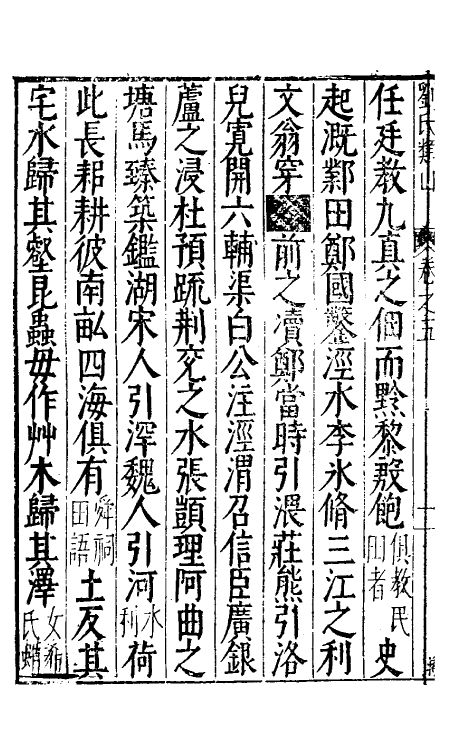 劉氏類山 卷之五 十一
任延教九真之佃而黔黎殷飽俱教民田者史
起溉鄴田鄭國鑿涇水李氷脩三江之利
文翁穿前之瀆鄭當時引渨莊熊引洛
兒寬開六輔渠白公注涇渭召信臣廣銀
蘆之浸杜預䟽荆兗之水張顗理阿曲之
塘馬臻築鑑湖宋人引滓魏人引河水利荷
此長耜耕彼南畝四海俱有舜祠田語土反其
宅水歸其壑昆蟲毋作艸木歸其澤女希氏蜡